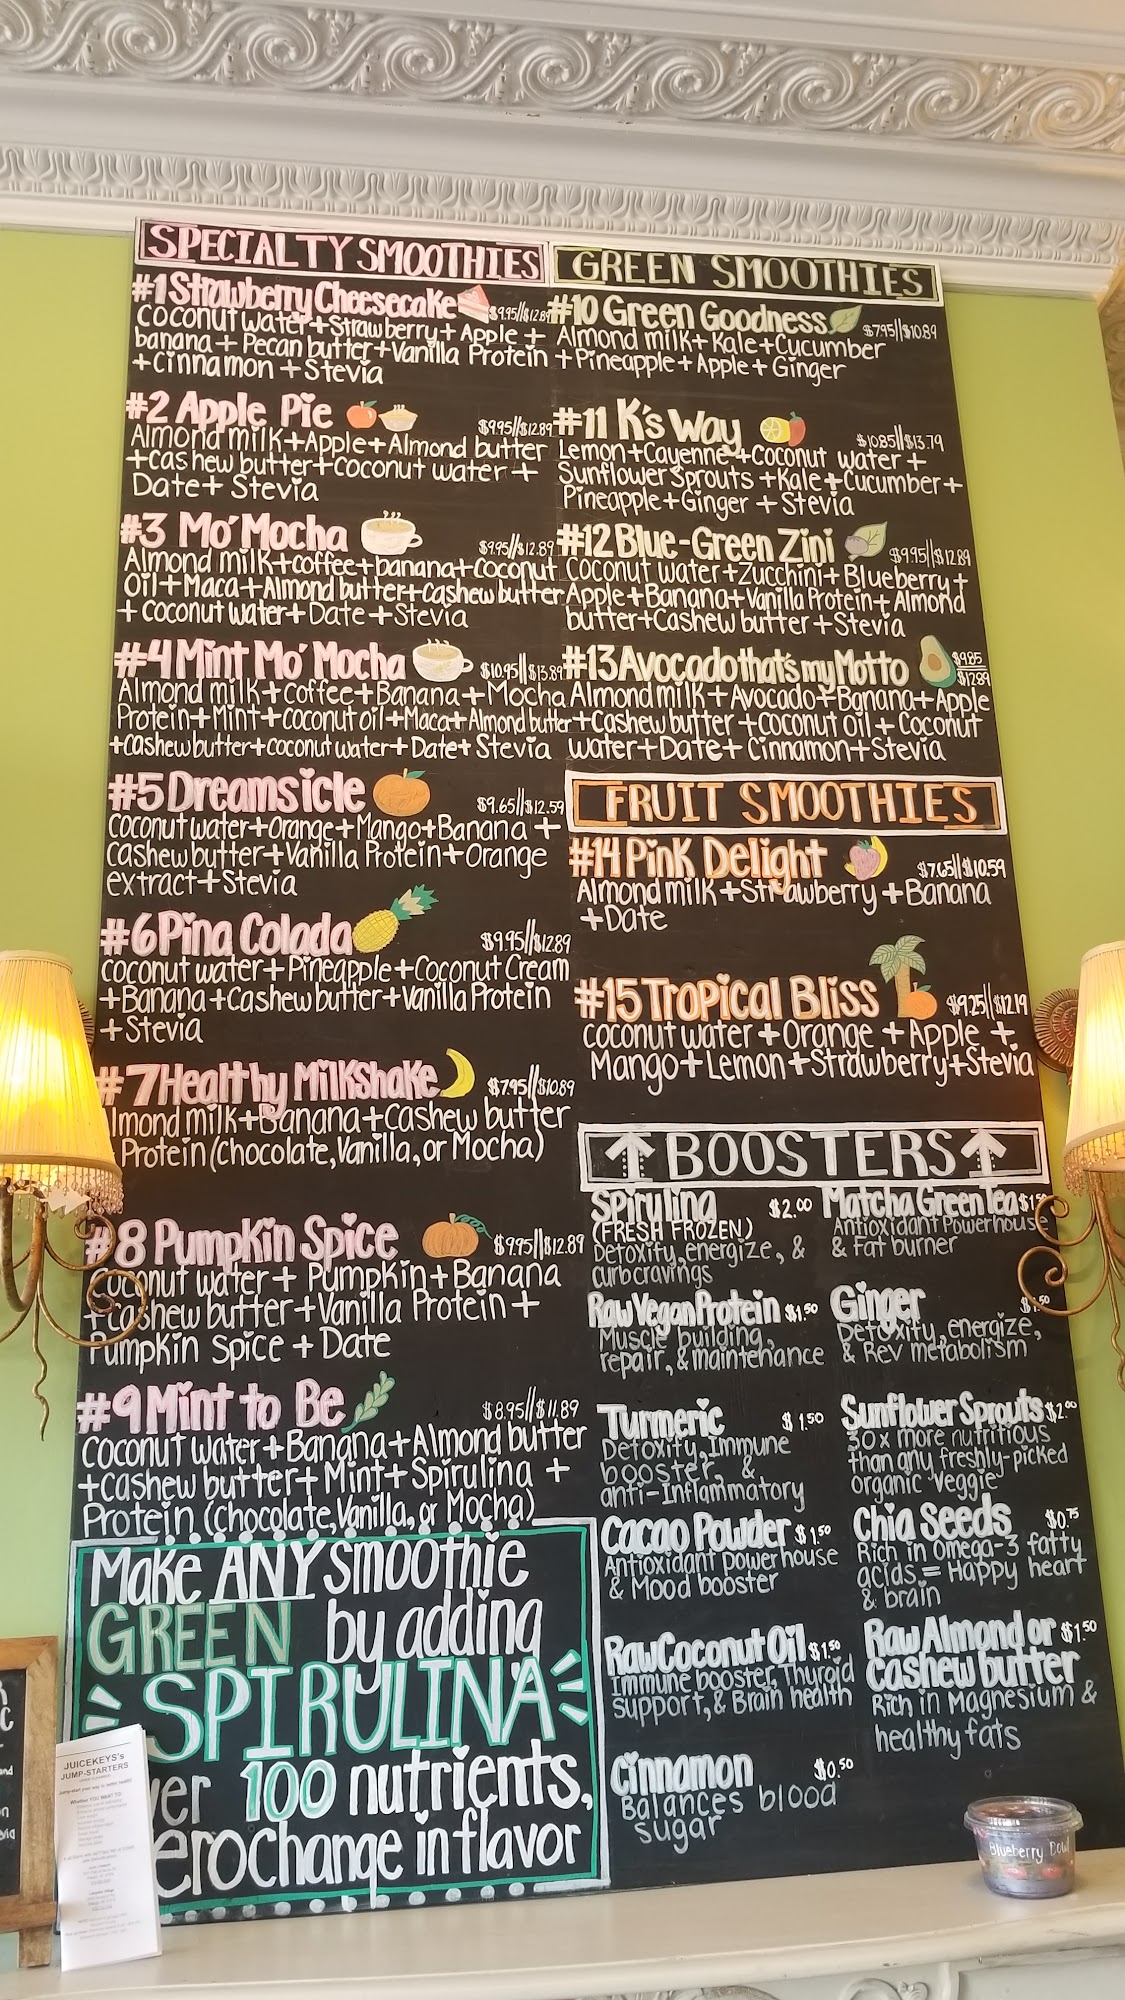 SPECIALTY SMOOTHIES
#1 Strawberry Cheesecake $9.95||$12.89
coconut water + Strawberry + Apple +
banana + Pecan butter + Vanilla Protein
+ Cinnamon + Stevia
#2 Apple Pie $9.95||$12.89
Almond milk + Apple + Almond butter
+ cashew butter + coconut water +
Date + Stevia
#3 Mo' Mocha $9.95||$12.89
Almond milk + coffee + banana + coconut
Oil + Maca + Almond butter + cashew butter
+ coconut water + Date + Stevia
#4 Mint Mo' Mocha $10.95||$13.89
Almond milk + coffee + Banana + Mocha
Protein + Mint + coconut oil + Maca + Almond butter
+ cashew butter + coconut water + Date + Stevia
#5 Dreamsicle $9.65||$12.59
coconut water + Orange + Mango + Banana +
cashew butter + Vanilla Protein + Orange
extract + Stevia
#6 Pina Colada $9.95||$12.89
coconut water + Pineapple + Coconut Cream
+ Banana + Cashew butter + Vanilla Protein
+ Stevia
#7 Healthy Milkshake $7.95||$10.89
lmond milk + Banana + Cashew butter
Protein (Chocolate, Vanilla, or Mocha)
#8 Pumpkin Spice $9.95||$12.89
Coconut water + Pumpkin + Banana
+ cashew butter + Vanilla Protein +
Pumpkin Spice + Date
#9 Mint to Be $8.95||$11.89
coconut water + Banana + Almond butter
+ cashew butter + Mint + Spirulina +
Protein (chocolate, Vanilla, or Mocha)
Make ANY smoothie
GREEN by adding
SPIRULINA
ver 100 nutrients,
erochange in flavor
GREEN SMOOTHIES
#10 Green Goodness $7.95||$10.89
Almond milk + Kale + Cucumber
+ Pineapple + Apple + Ginger
#11 K's Way $10.85||$13.79
Lemon + Cayenne + Coconut water +
Sunflower Sprouts + Kale + Cucumber +
Pineapple + Ginger + Stevia
#12 Blue-Green Zini $9.95||$12.89
Coconut water + Zucchini + Blueberry +
Apple + Banana + Vanilla Protein + Almond
butter + Cashew butter + Stevia
#13 Avocado that's my Motto $9.85
$12.89
Almond milk + Avocado + Banana + Apple
+ Cashew butter + coconut oil + Coconut
water + Date + Cinnamon + Stevia
FRUIT SMOOTHIES
#14 Pink Delight $7.65||$10.59
Almond milk + Strawberry + Banana
+ Date
#15 Tropical Bliss $9.25||$12.19
coconut water + Orange + Apple +
Mango + Lemon + Strawberry + Stevia
BOOSTERS
Spirulina $2.00
(FRESH FROZEN)
Detoxify, energize, &
curb cravings
Raw Vegan Protein $1.50
Muscle building,
repair, & maintenance
Turmeric $1.50
Detoxify, Immune
booster, &
anti-Inflammatory
Cacao Powder $1.50
Antioxidant powerhouse
& Mood booster
Raw Coconut Oil $1.50
Immune booster, Thyroid
support, & Brain health
Cinnamon $0.50
Balances blood
sugar
Matcha Green Tea $1.50
Antioxidant Powerhouse
& Fat burner
Ginger
Detoxify, energize,
& Rev metabolism
Sunflower Sprouts $2.00
30x more nutritious
than any freshly-picked
organic veggie
Chia Seeds $0.75
Rich in Omega-3 fatty
acids = Happy heart
& brain
Raw Almond or $1.50
Cashew butter
Rich in Magnesium &
healthy fats
JUICEKEYS's
JUMP-STARTERS
Blueberry Bowl